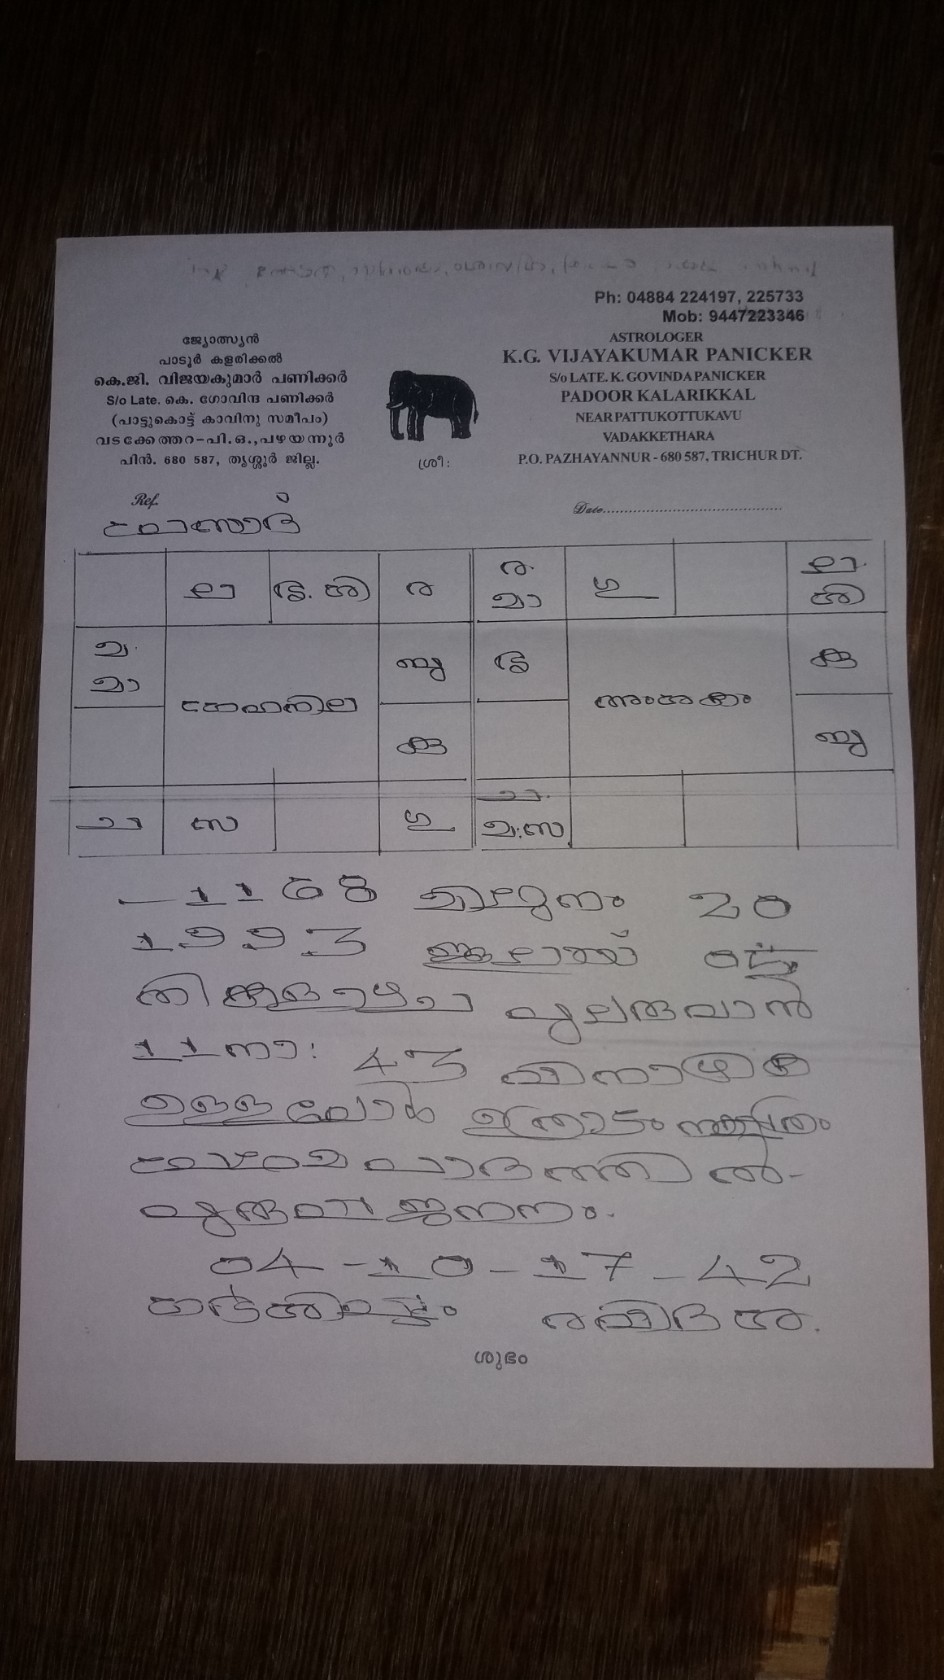 Ph: 04884 224197, 225733
Mob: 9447223346
ജ്യോത്സ്യൻ
പാടൂർ കളരിക്കൽ
കെ.ജി. വിജയകുമാർ പണിക്കർ
S/o Late. കെ. ഗോവിന്ദ പണിക്കർ
(പാട്ടുകൊട്ട് കാവിനു സമീപം)
വടക്കേത്തറ-പി.ഒ.,പഴയന്നൂർ
പിൻ. 680 587, തൃശ്ശൂർ ജില്ല.
ശ്രീ:
ASTROLOGER
K.G. VIJAYAKUMAR PANICKER
S/o LATE. K. GOVINDA PANICKER
PADOOR KALARIKKAL
NEAR PATTUKOTTUKAVU
VADAKKETHARA
P.O. PAZHAYANNUR - 680 587, TRICHUR DT.
Ref.
Date
ല ശി ര ര മാ ഗു ല ശി
ച മാ ബു കു
ഗ്രഹനില അംശകം
കു ബു
സ ഗു
1168 മിഥുനം 20
1993 ജൂലായ് 05
തിങ്കളാഴ്ച പുലരുവാൻ
11 നാ: 43 വിനാഴിക
ഉള്ളപ്പോൾ ഉത്രാടം നക്ഷത്രം
പ്രഥമ പാദത്തിൽ
പുരുഷ ജനനം.
04-10-17-42
ഗർഭശിഷ്ടം രവിദശ.
ശുഭം